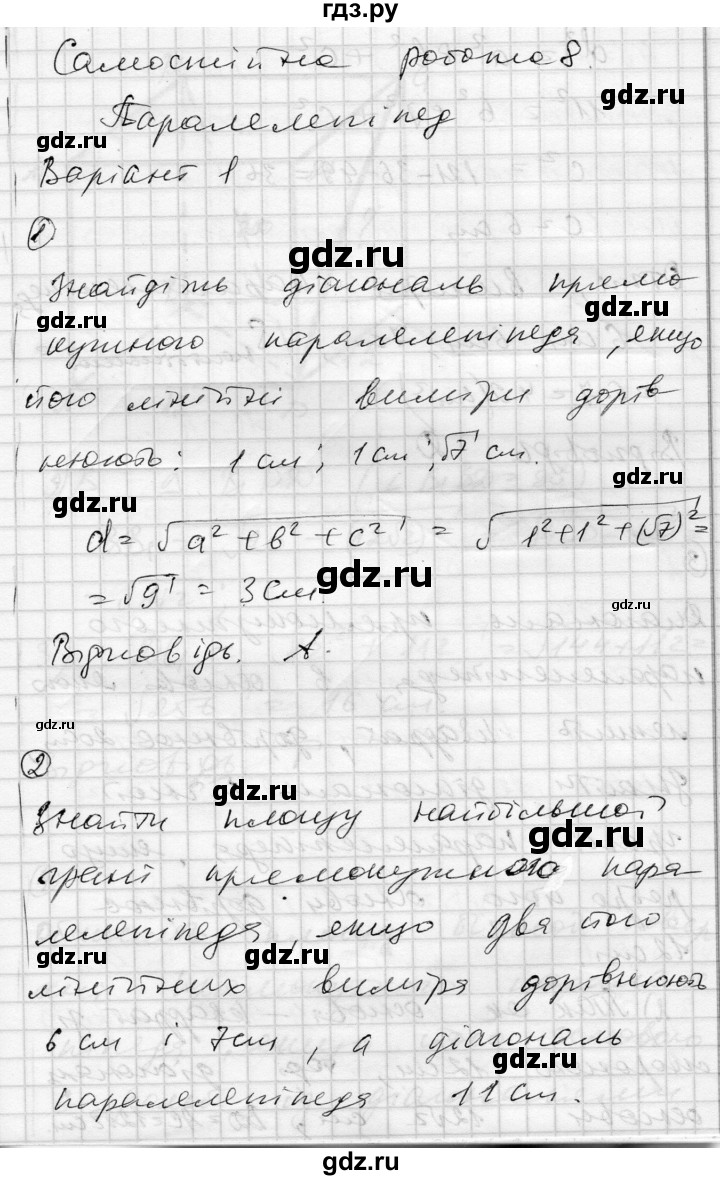 гдз.ру
Самостійна робота 8.
Паралелепіпед
gdz.ru
Варіант 1
gdz.ru
1
gdz.ru
Знайдіть діагональ прямо
gdz.ru
gdz.ru
кутного паралелепіпеда, якщо
його лінійні виміри дорів
нюють: 1 см; 1 см; √7 см.
gdz.ru
gdz.ru
d = √a² + b² + c² = √1² + 1² + (√7)² =
gdz.ru
= √9 = 3 см.
gdz.ru
Відповідь. А.
gdz.ru
gdz.ru
2
Знайти площу найбільшої
gdz.ru
gdz.ru
грані прямокутного пара
лелепіпеда, якщо два його
gdz.ru
gdz.ru
лінійних виміра дорівнюють
6 см і 7 см, а діагональ
gdz.ru
gdz.ru
паралелепіпеда 11 см.
gdz.ru